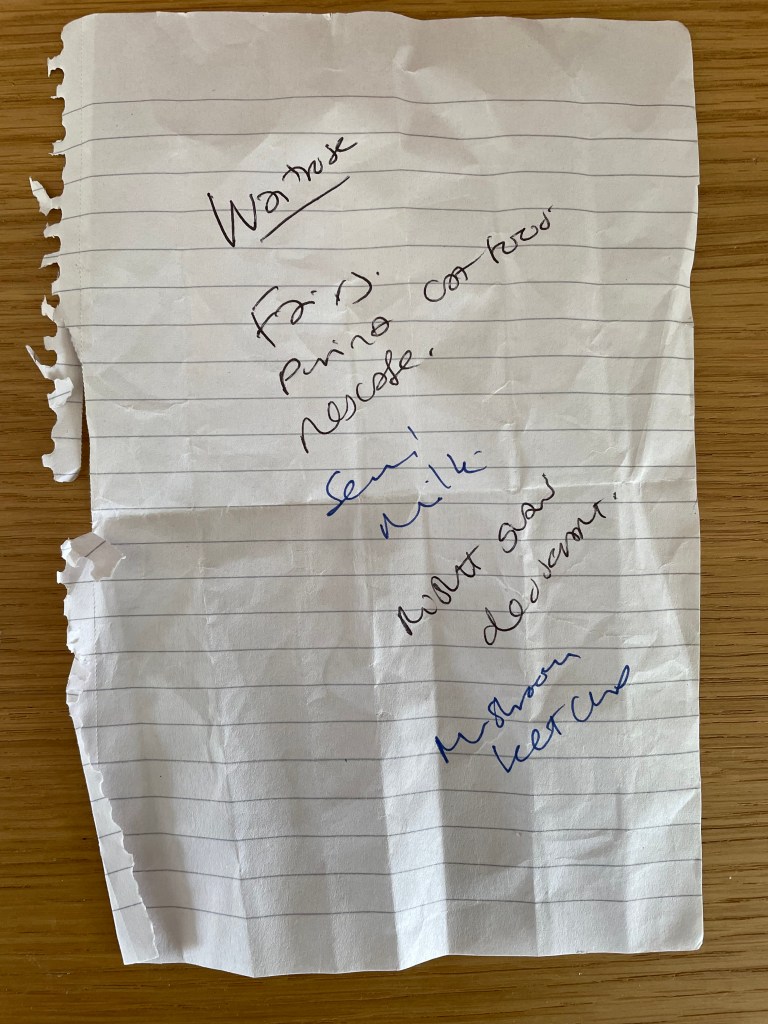 Waitrose
Fairy.
Purina cat food.
Nescafe.
Semi
Milk
Right Guard
deodorant.
Mushroom
Ketchup